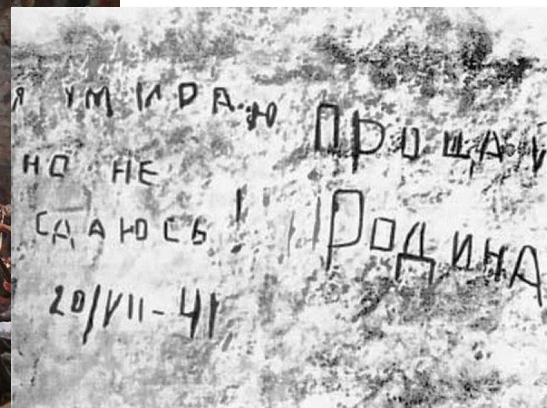 Я УМИРАЮ
НО НЕ
СДАЮСЬ!
20/VII-41
ПРОЩАЙ
РОДИНА